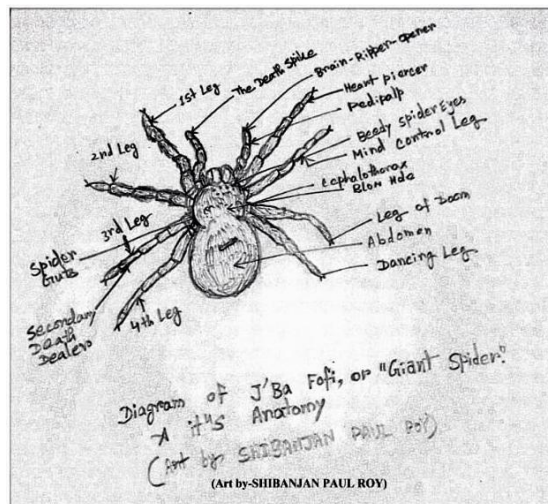 1st Leg
The Death Spike
Brain-Ripper-opener
Heart piercer
Pedipalp
Beedy Spider Eyes
Mind Control Leg
Cephalothorax
Blow Hole
Leg of Doom
Abdomen
Dancing Leg
2nd Leg
3rd Leg
Spider
Guts
Secondary
Death
Dealers
4th Leg
Diagram of J'Ba Fofi, or "Giant Spider."
& it's Anatomy
(Art by- SHIBANJAN PAUL ROY)
(Art by-SHIBANJAN PAUL ROY)